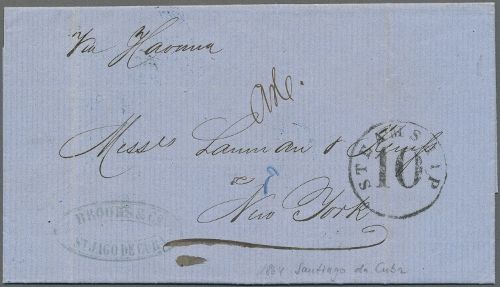 Via Havana
Messrs Lanman & Kemp
New York
STEAMSHIP
10
BROOKS & Co
ST JAGO DE CUBA
1864 Santiago de Cuba